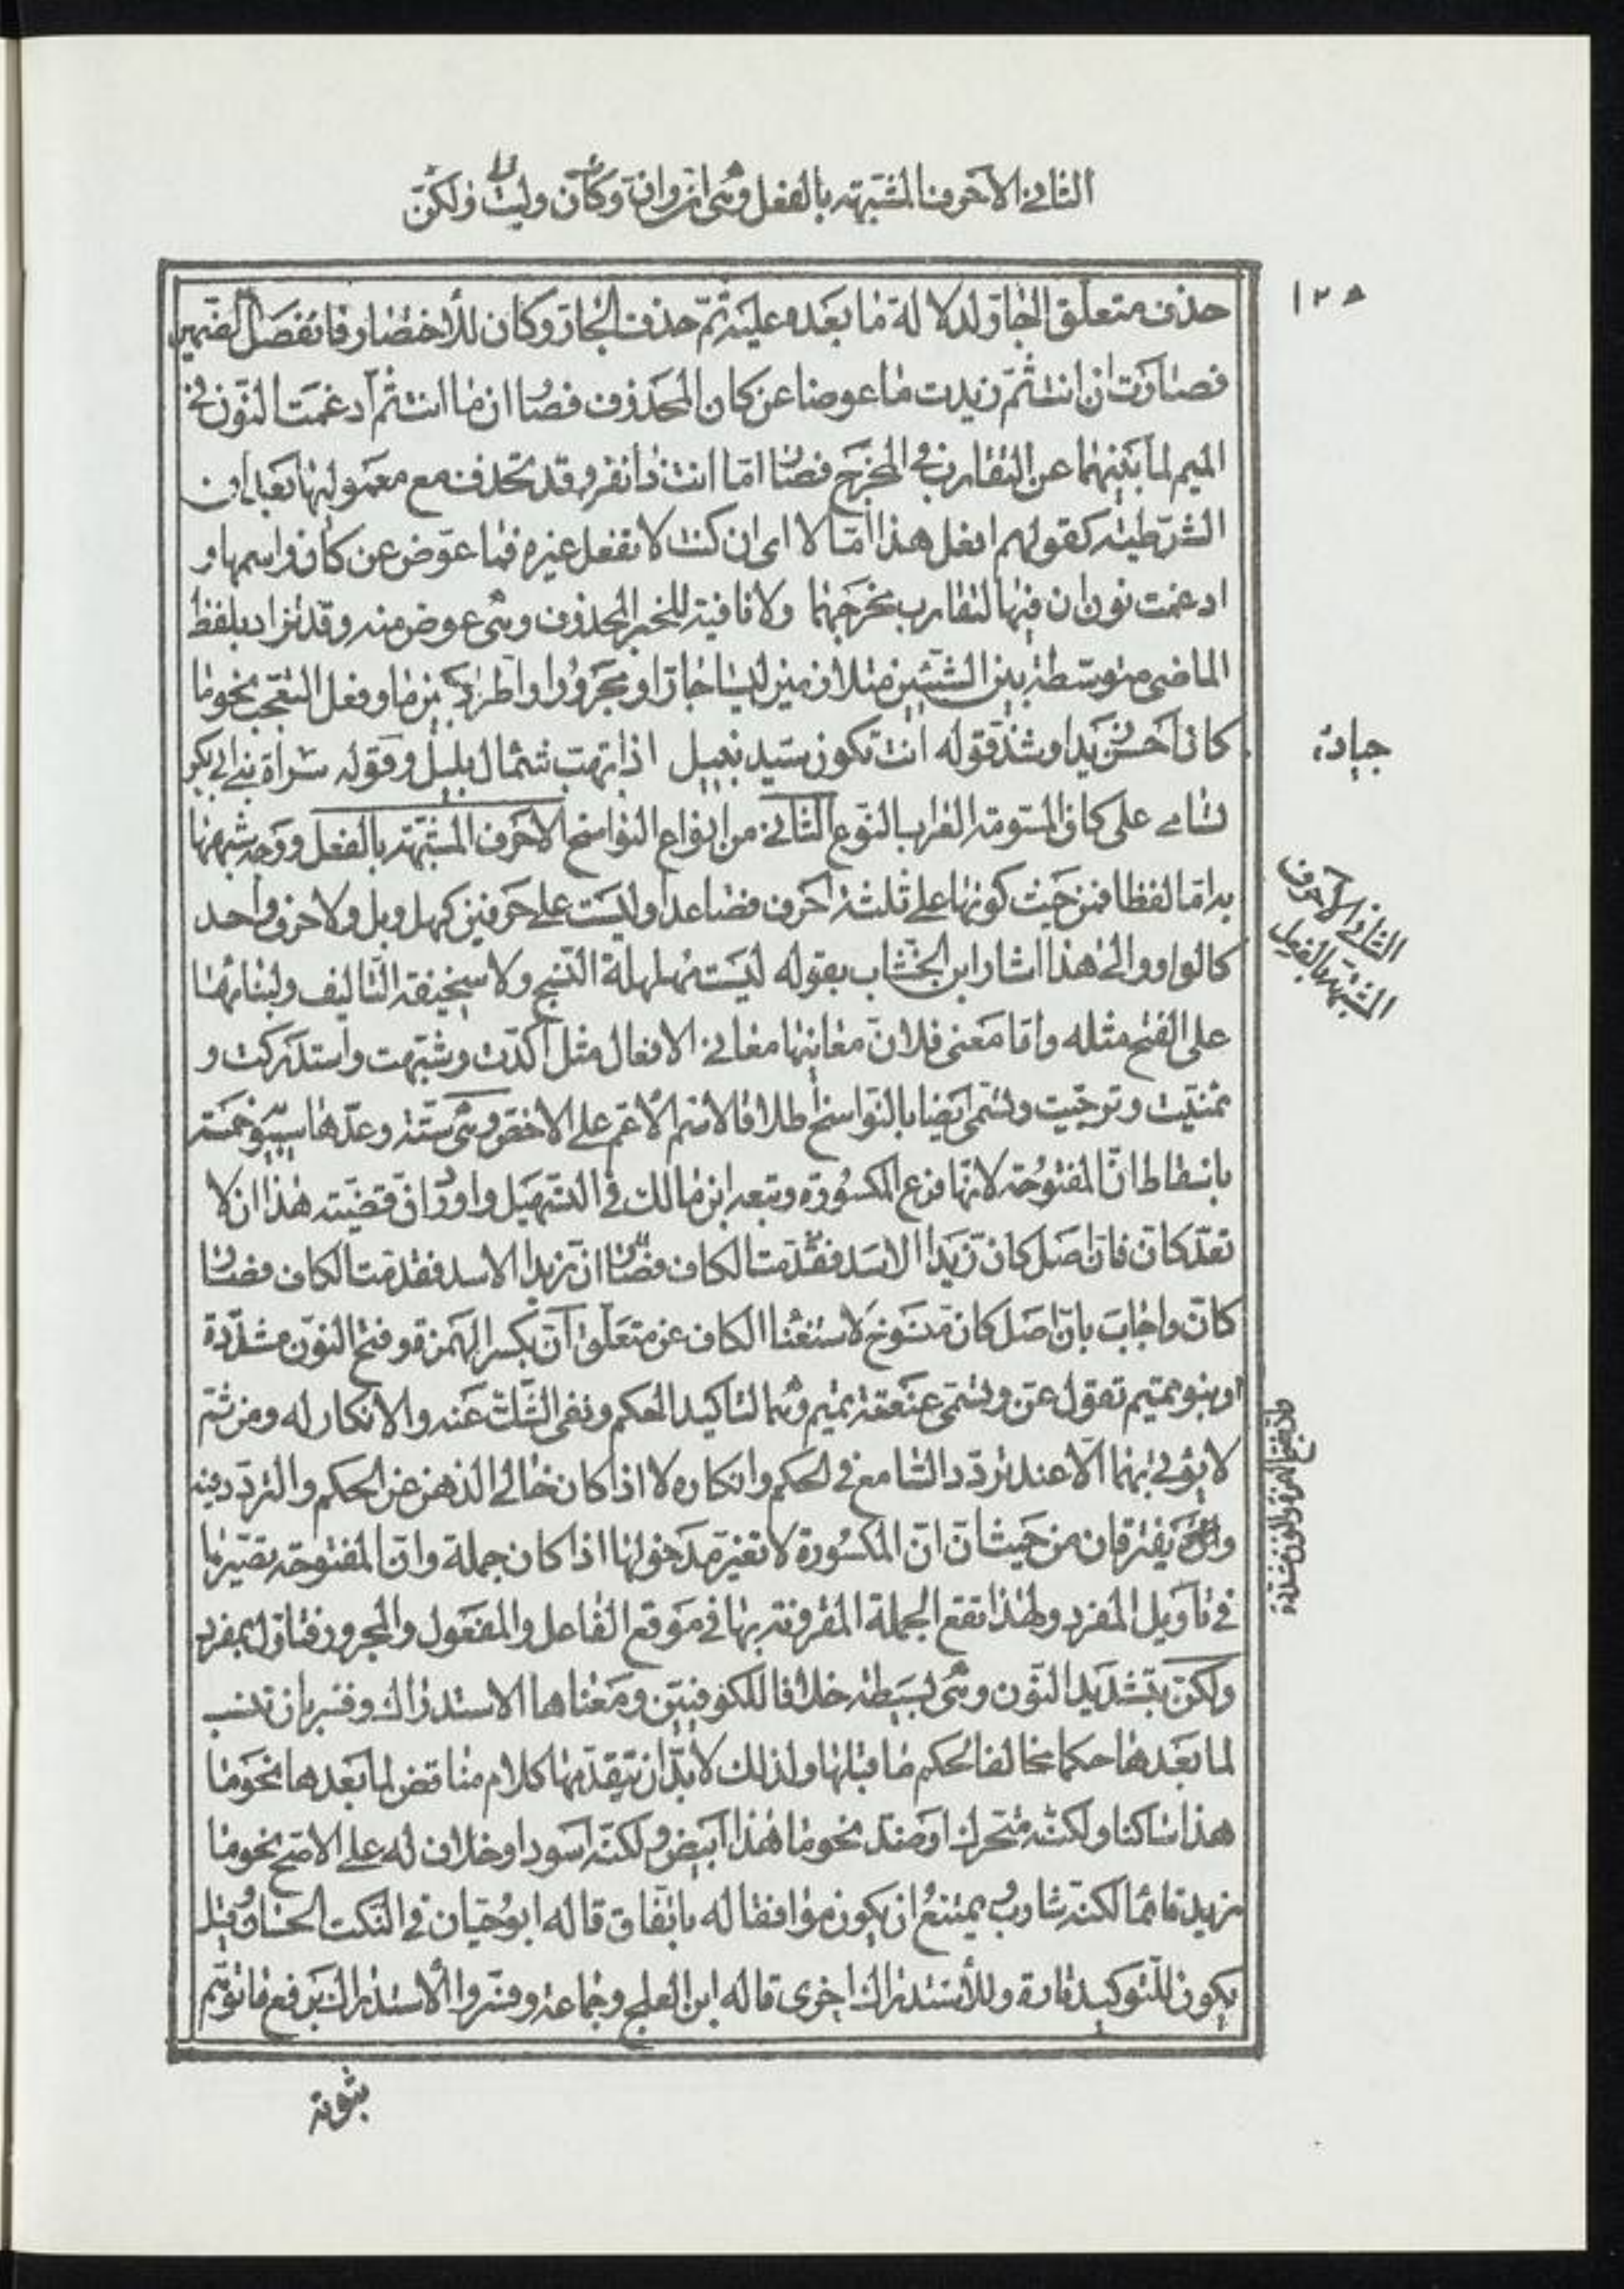 الثانى الاحرف المشبهة بالفعل وهى ان وان وكان وليت ولكن
١٢٥
حذف متعلق الجار لدلالة ما بعده عليه ثم حذف الجار وكان للأختصار فانفصل الضمير
فصارت ان انت ثم زيدت ما عوضا عن كان المحذوف فصار ان ما انت ثم ادغمت النون فى
الميم لما بينهما عن التقارب فى المخرج فصار اما انت ذا نفر وقد تحذف مع معموليها بعد ان
الشرطية كقولهم افعل هذا امّا لا اى ان كنت لا تفعل غيره فما عوض عن كان واسمها و
ادغمت نون ان فيها لتقارب مخرجهما ولا نافية للخبر المحذوف وهى عوض منه وقد تزاد بلفظ
الماضى متوسطة بين الشيئين متلازمين ليسا جارا ومجرورا واطرد بين ما وفعل التعجب نحو ما
كان احسن زيدا وشذ قوله انت تكون سيد نبيل اذا تهب شمال بليل وقوله سراة بنى ابى بكر
جياد
تسامى على كان المسومة العراب النوع الثانى من انواع النواسخ الاحرف المشبهة بالفعل ووجه شبهها
الثانى الاحرف
المشبهة بالفعل
به اما لفظا فمن حيث كونها على ثلثة احرف فصاعدا وليست على حرفين كهل وبل ولا حرف واحد
كالواو والى هذا اشار ابن الخشاب بقوله ليست مهلهلة النسج ولا سخيفة التاليف ولبنائها
على الفتح مثله واما معنى فلان معانيها معانى الافعال مثل اكدت وشبهت واستدركت و
تمنيت وترجيت وتسمى ايضا بالنواسخ اطلاقا لاسم الاعم على الاخص وهى ستة وعدها سيبويه خمسة
باسقاط ان المفتوحة لانها فرع المكسورة وتبعه ابن مالك فى التسهيل واورد ان قضية هذا ان لا
تعد كان فان اصل كان زيدا الاسد فقدمت الكاف فصار ان زيدا الاسد فقدمت الكاف فصار
كان واجاب بان اصل كان منسوخ لاستغناء الكاف عن متعلق ان بكسر الهمزة وفتح النون مشددة
وان بفتح الهمزة والنون مشددة
وبنو تميم تقول عن وتسمى عنعنة تميم وهما لتاكيد الحكم ونفى الشك عنه والانكار له ومن ثم
لا يؤتى بهما الا عند تردد السامع فى الحكم وانكاره لا اذا كان خالى الذهن عن الحكم والتردد فيه
يفترقان من حيث ان ان المكسورة لا تغير مدخولها اذا كان جملة وان المفتوحة تصيرها
فى تاويل المفرد ولهذا تقع الجملة المقرونة بها فى موقع الفاعل والمفعول والمجرور فتاول بمفرد
ولكن بتشديد النون وهى بسيطة خلافا للكوفيين ومعناها الاستدراك وفسر بان تنسب
لما بعدها حكما مخالفا لحكم ما قبلها ولذلك لا بد ان يتقدمها كلام مناقض لما بعدها نحو ما
هذا ساكنا ولكنه متحرك او ضد نحو ما هذا ابيض ولكنه اسود او خلاف له على الاصح نحو ما
زيد قائما لكنه شارب ويمتنع ان يكون موافقا له باتفاق قاله ابوحيان فى النكت الحسان وقيل
يكون للتوكيد تارة وللأستدراك اخرى قاله ابن العلج وجماعة وفسروا الاستدراك برفع ما توهم
ثبوته